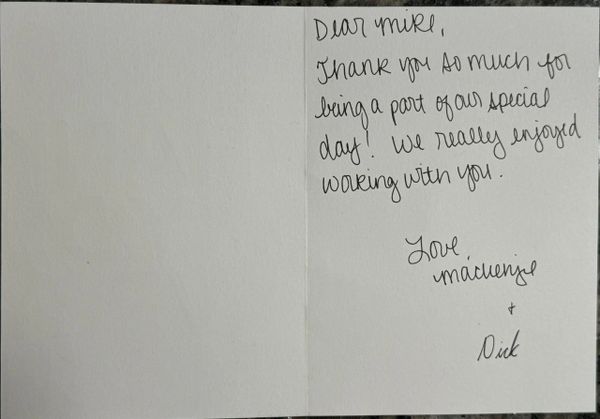 Dear Mike,
Thank you so much for
being a part of our special
day! We really enjoyed
working with you.
Love,
Mackenzie
+
Dick